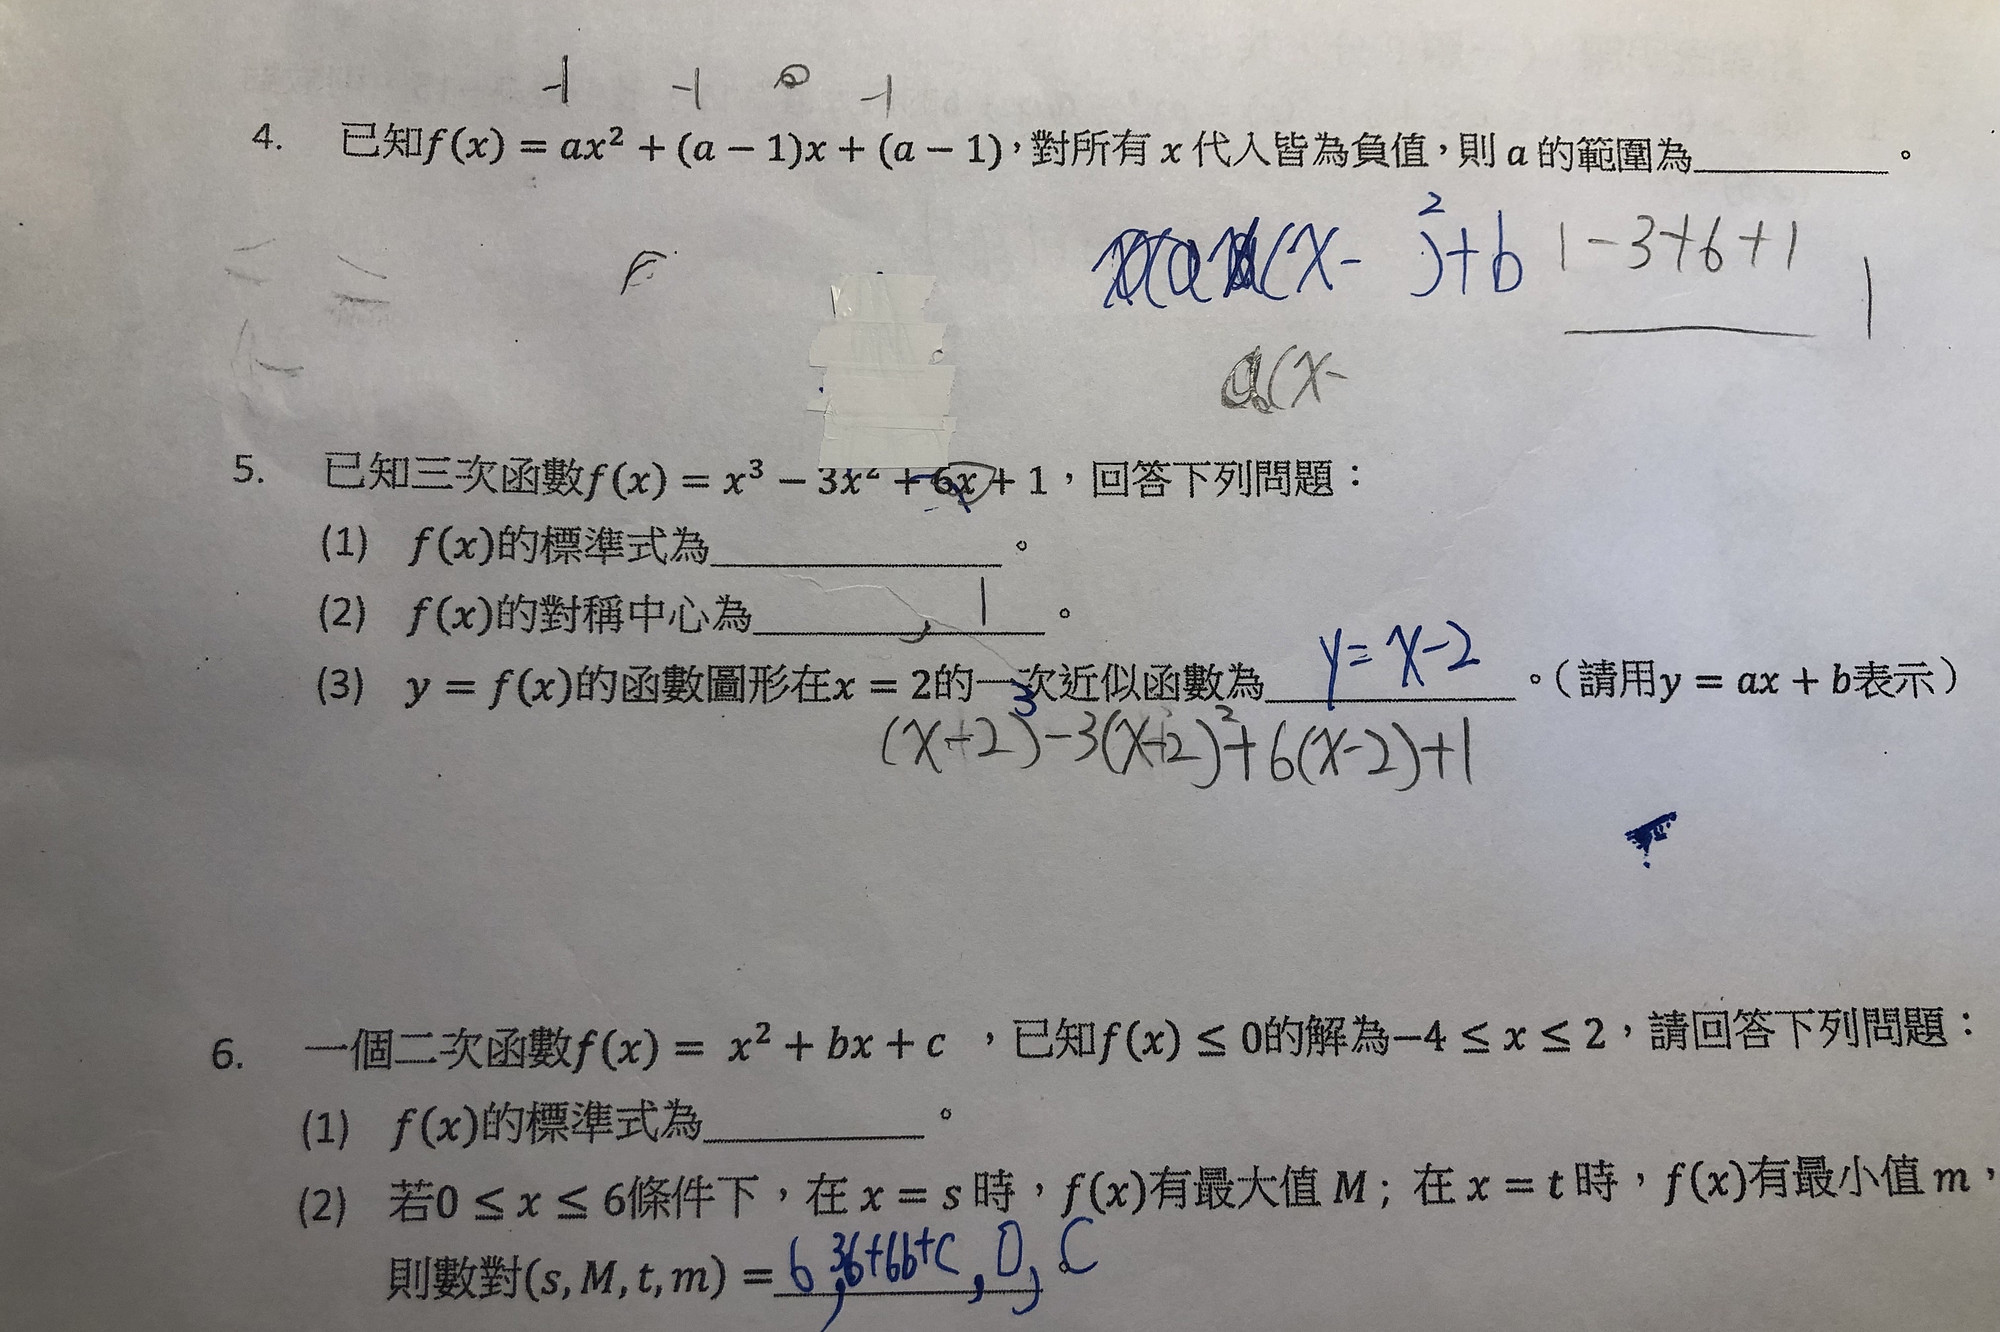 -1 -1 0 -1
4. 已知f(x) = ax² + (a − 1)x + (a − 1)，對所有 x 代入皆為負值，則 a 的範圍為__________。
(x- )²+b 1-3+6+1 1
a(x-
5. 已知三次函數f(x) = x³ − 3x² + 6x + 1，回答下列問題：
(1) f(x)的標準式為__________。
(2) f(x)的對稱中心為 , 1 。
(3) y = f(x)的函數圖形在x = 2的一次近似函數為 y=x-2 。（請用y = ax + b表示）
(x+2)³-3(x+2)²+6(x-2)+1
6. 一個二次函數f(x) = x² + bx + c ，已知f(x) ≤ 0的解為−4 ≤ x ≤ 2，請回答下列問題：
(1) f(x)的標準式為__________。
(2) 若0 ≤ x ≤ 6條件下，在 x = s 時，f(x)有最大值 M；在 x = t 時，f(x)有最小值 m，
則數對(s, M, t, m) = 6, 36+6b+c, 0, c